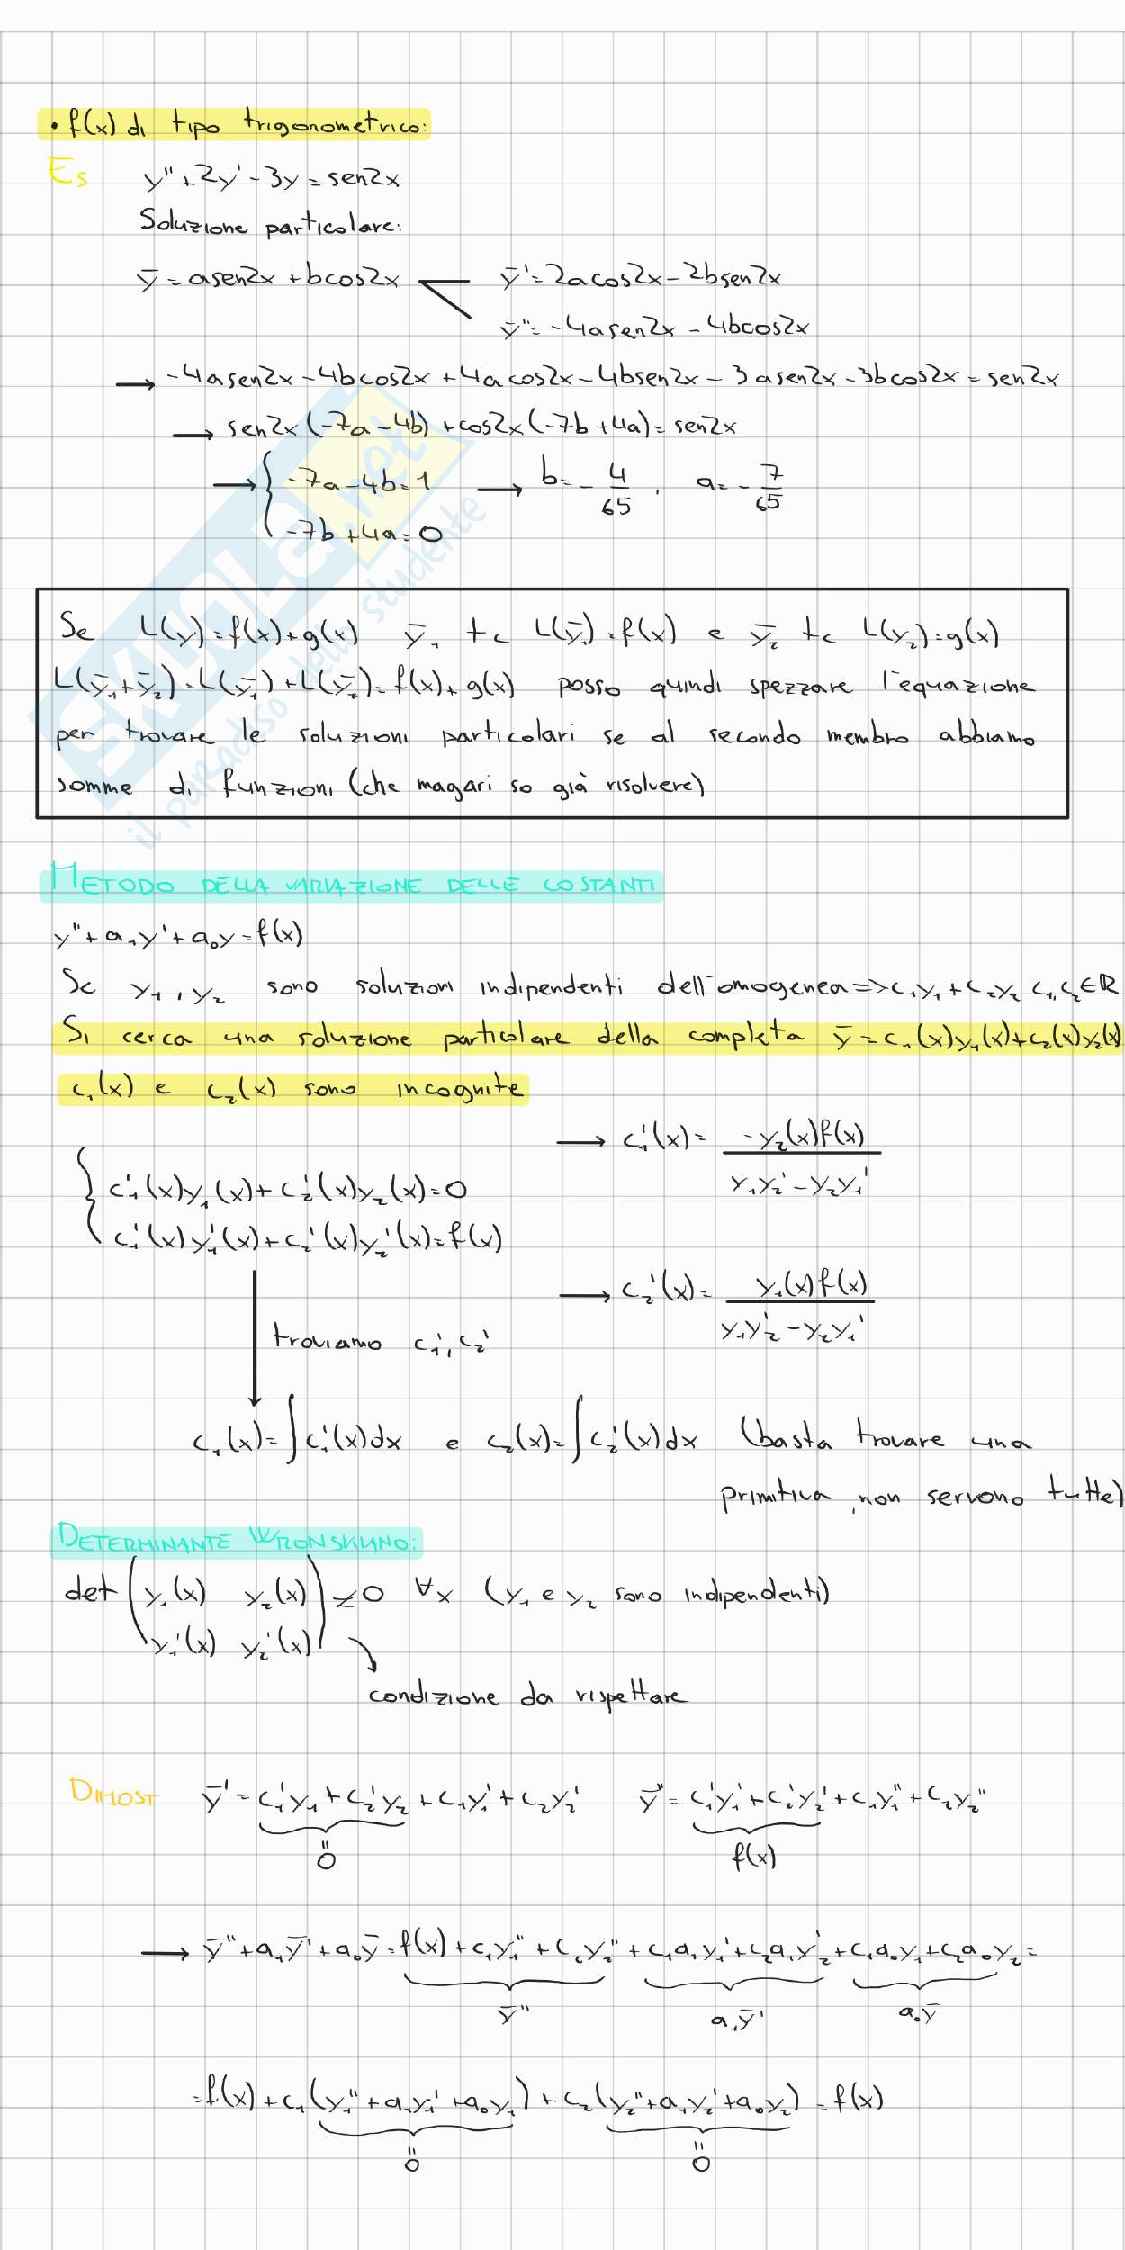 • f(x) di tipo trigonometrico:
Es y'' + 2y' - 3y = sen2x
Soluzione particolare:
ȳ = asen2x + bcos2x ȳ' = 2acos2x - 2bsen2x
ȳ'' = -4asen2x - 4bcos2x
→ -4asen2x - 4bcos2x + 4acos2x - 4bsen2x - 3asen2x - 3bcos2x = sen2x
→ sen2x(-7a - 4b) + cos2x(-7b + 4a) = sen2x
→ { -7a - 4b = 1 → b = - 4/65 , a = - 7/65
-7b + 4a = 0
Se L(y) = f(x) + g(x) ȳ₁ tc L(ȳ₁) = f(x) e ȳ₂ tc L(y₂) = g(x)
L(ȳ₁+ȳ₂) = L(ȳ₁) + L(ȳ₂) = f(x) + g(x) posso quindi spezzare l'equazione
per trovare le soluzioni particolari se al secondo membro abbiamo
somme di funzioni (che magari so già risolvere)
METODO DELLA VARIAZIONE DELLE COSTANTI
y'' + a₁y' + a₀y = f(x)
Se y₁, y₂ sono soluzioni indipendenti dell'omogenea => c₁y₁ + c₂y₂ c₁,c₂∈ℝ
Si cerca una soluzione particolare della completa ȳ = c₁(x)y₁(x)+c₂(x)y₂(x)
c₁(x) e c₂(x) sono incognite
→ c₁'(x) = -y₂(x)f(x) / y₁y₂' - y₂y₁'
{ c₁'(x)y₁(x) + c₂'(x)y₂(x) = 0
c₁'(x)y₁'(x) + c₂'(x)y₂'(x) = f(x)
→ c₂'(x) = y₁(x)f(x) / y₁y₂' - y₂y₁'
troviamo c₁', c₂'
c₁(x) = ∫c₁'(x)dx e c₂(x) = ∫c₂'(x)dx (basta trovare una
primitiva, non servono tutte)
DETERMINANTE WRONSKIANO:
det ( y₁(x) y₂(x) ) ≠ 0 ∀x (y₁ e y₂ sono indipendenti)
y₁'(x) y₂'(x)
condizione da rispettare
DIMOST ȳ' = c₁'y₁ + c₂'y₂ + c₁y₁' + c₂y₂' ȳ'' = c₁'y₁' + c₂'y₂' + c₁y₁'' + c₂y₂''
0 f(x)
→ ȳ'' + a₁ȳ' + a₀ȳ = f(x) + c₁y₁'' + c₂y₂'' + c₁a₁y₁' + c₂a₁y₂' + c₁a₀y₁ + c₂a₀y₂ =
ȳ'' a₁ȳ' a₀ȳ
= f(x) + c₁(y₁'' + a₁y₁' + a₀y₁) + c₂(y₂'' + a₁y₂' + a₀y₂) = f(x)
0 0
skuola.net
il paradiso dello studente